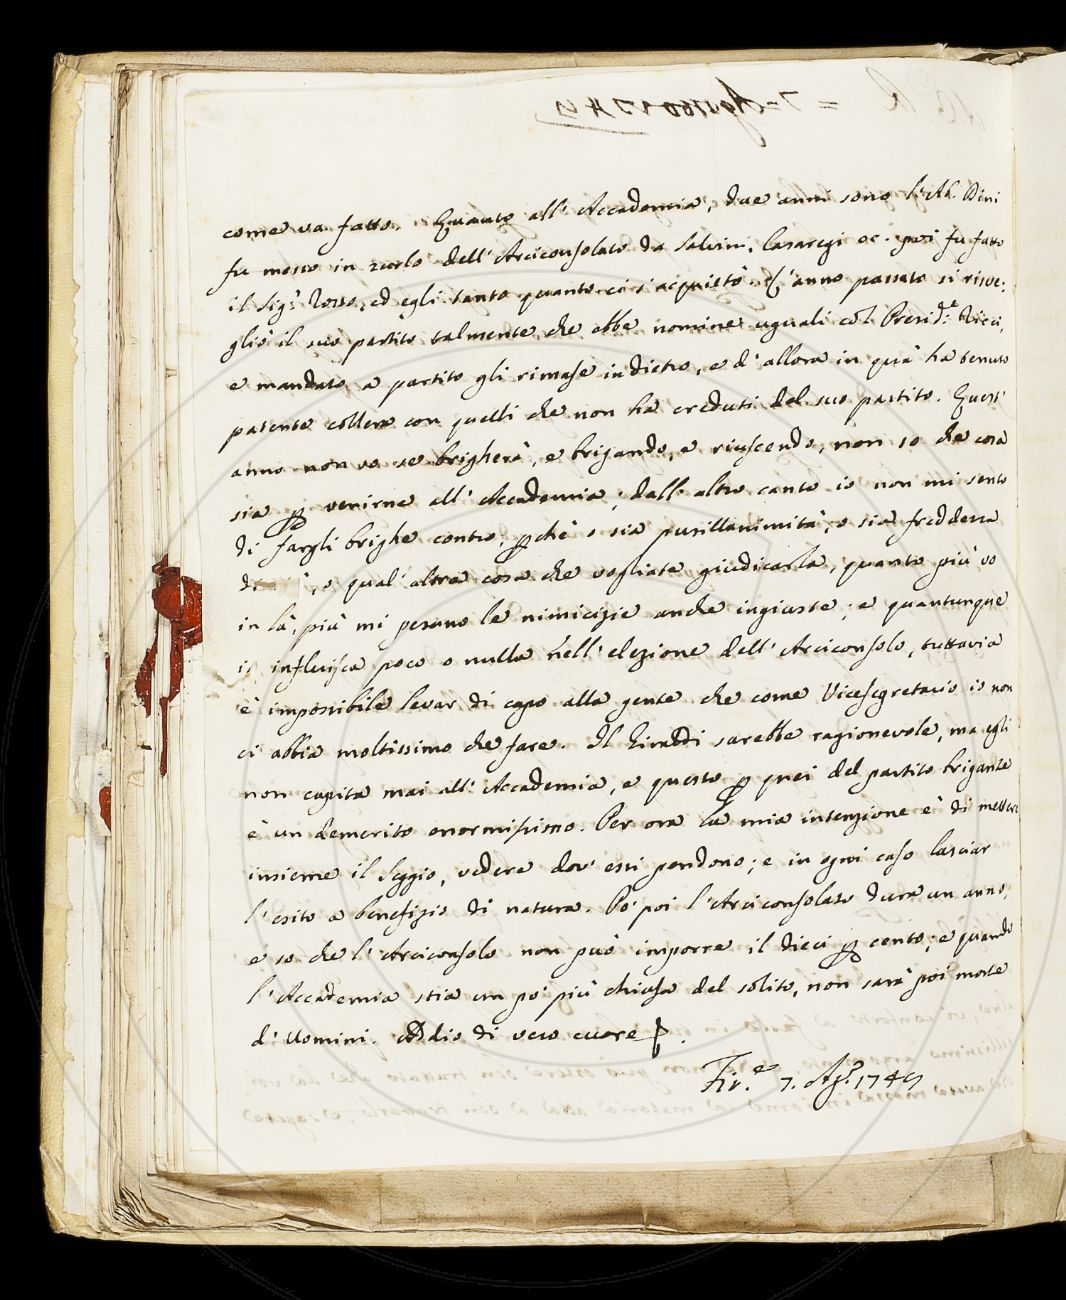 come va fatto. Quanto all' Accademia, due anni sono l'Ab. Dini
fu messo in zurlo dell'Arciconsolato da Salvini, Casaregi ec. poi fu fatto
il Sig.r Rosso, ed egli tanto quanto ci s'acquietò. L'anno passato si risve:
gliò il suo partito talmente, che ebbe nomine uguali col Presid.e Ricci,
e mandato a partito gli rimase indietro, e d'allora in quà ha tenuto
patente collera con quelli che non ha creduti del suo partito. Quest'
anno non so se brigherà, e brigando, e riuscendo, non so che cosa
sia p venirne all' Accademia; dall' altro canto io non mi sento
di fargli brighe contro, pchè o sia pusillanimità, o sia freddezza
di , o qual' altra cosa che vogliate giudicarla, quanto più vo
in là, più mi pesano le nimicizie anche ingiuste; e quantunque
io influisca poco o nulla nell'elezione dell' Arciconsolo, tuttavia
è impossibile levar di capo alla gente che come Vicesegretario io non
ci abbia moltissimo che fare. Il Giraldi sarebbe ragionevole, ma egli
non capita mai all' Accademia, e questo p quei del partito brigante
è un demerito enormissimo. Per ora la mia intenzione è di mettere
insieme il Seggio, vedere dov' essi pendono; e in ogni caso lasciar
l'esito a benefizio di natura. Po' poi l'Arciconsolato dura un anno,
e so che l'Arciconsolo non può imporre il dieci p cento; e quando
l'Accademia stia un po' più chiusa del solito, non sarà poi morte
d'Uomini. Addio di vero cuore
Fir.e 7. Ag.o 1749